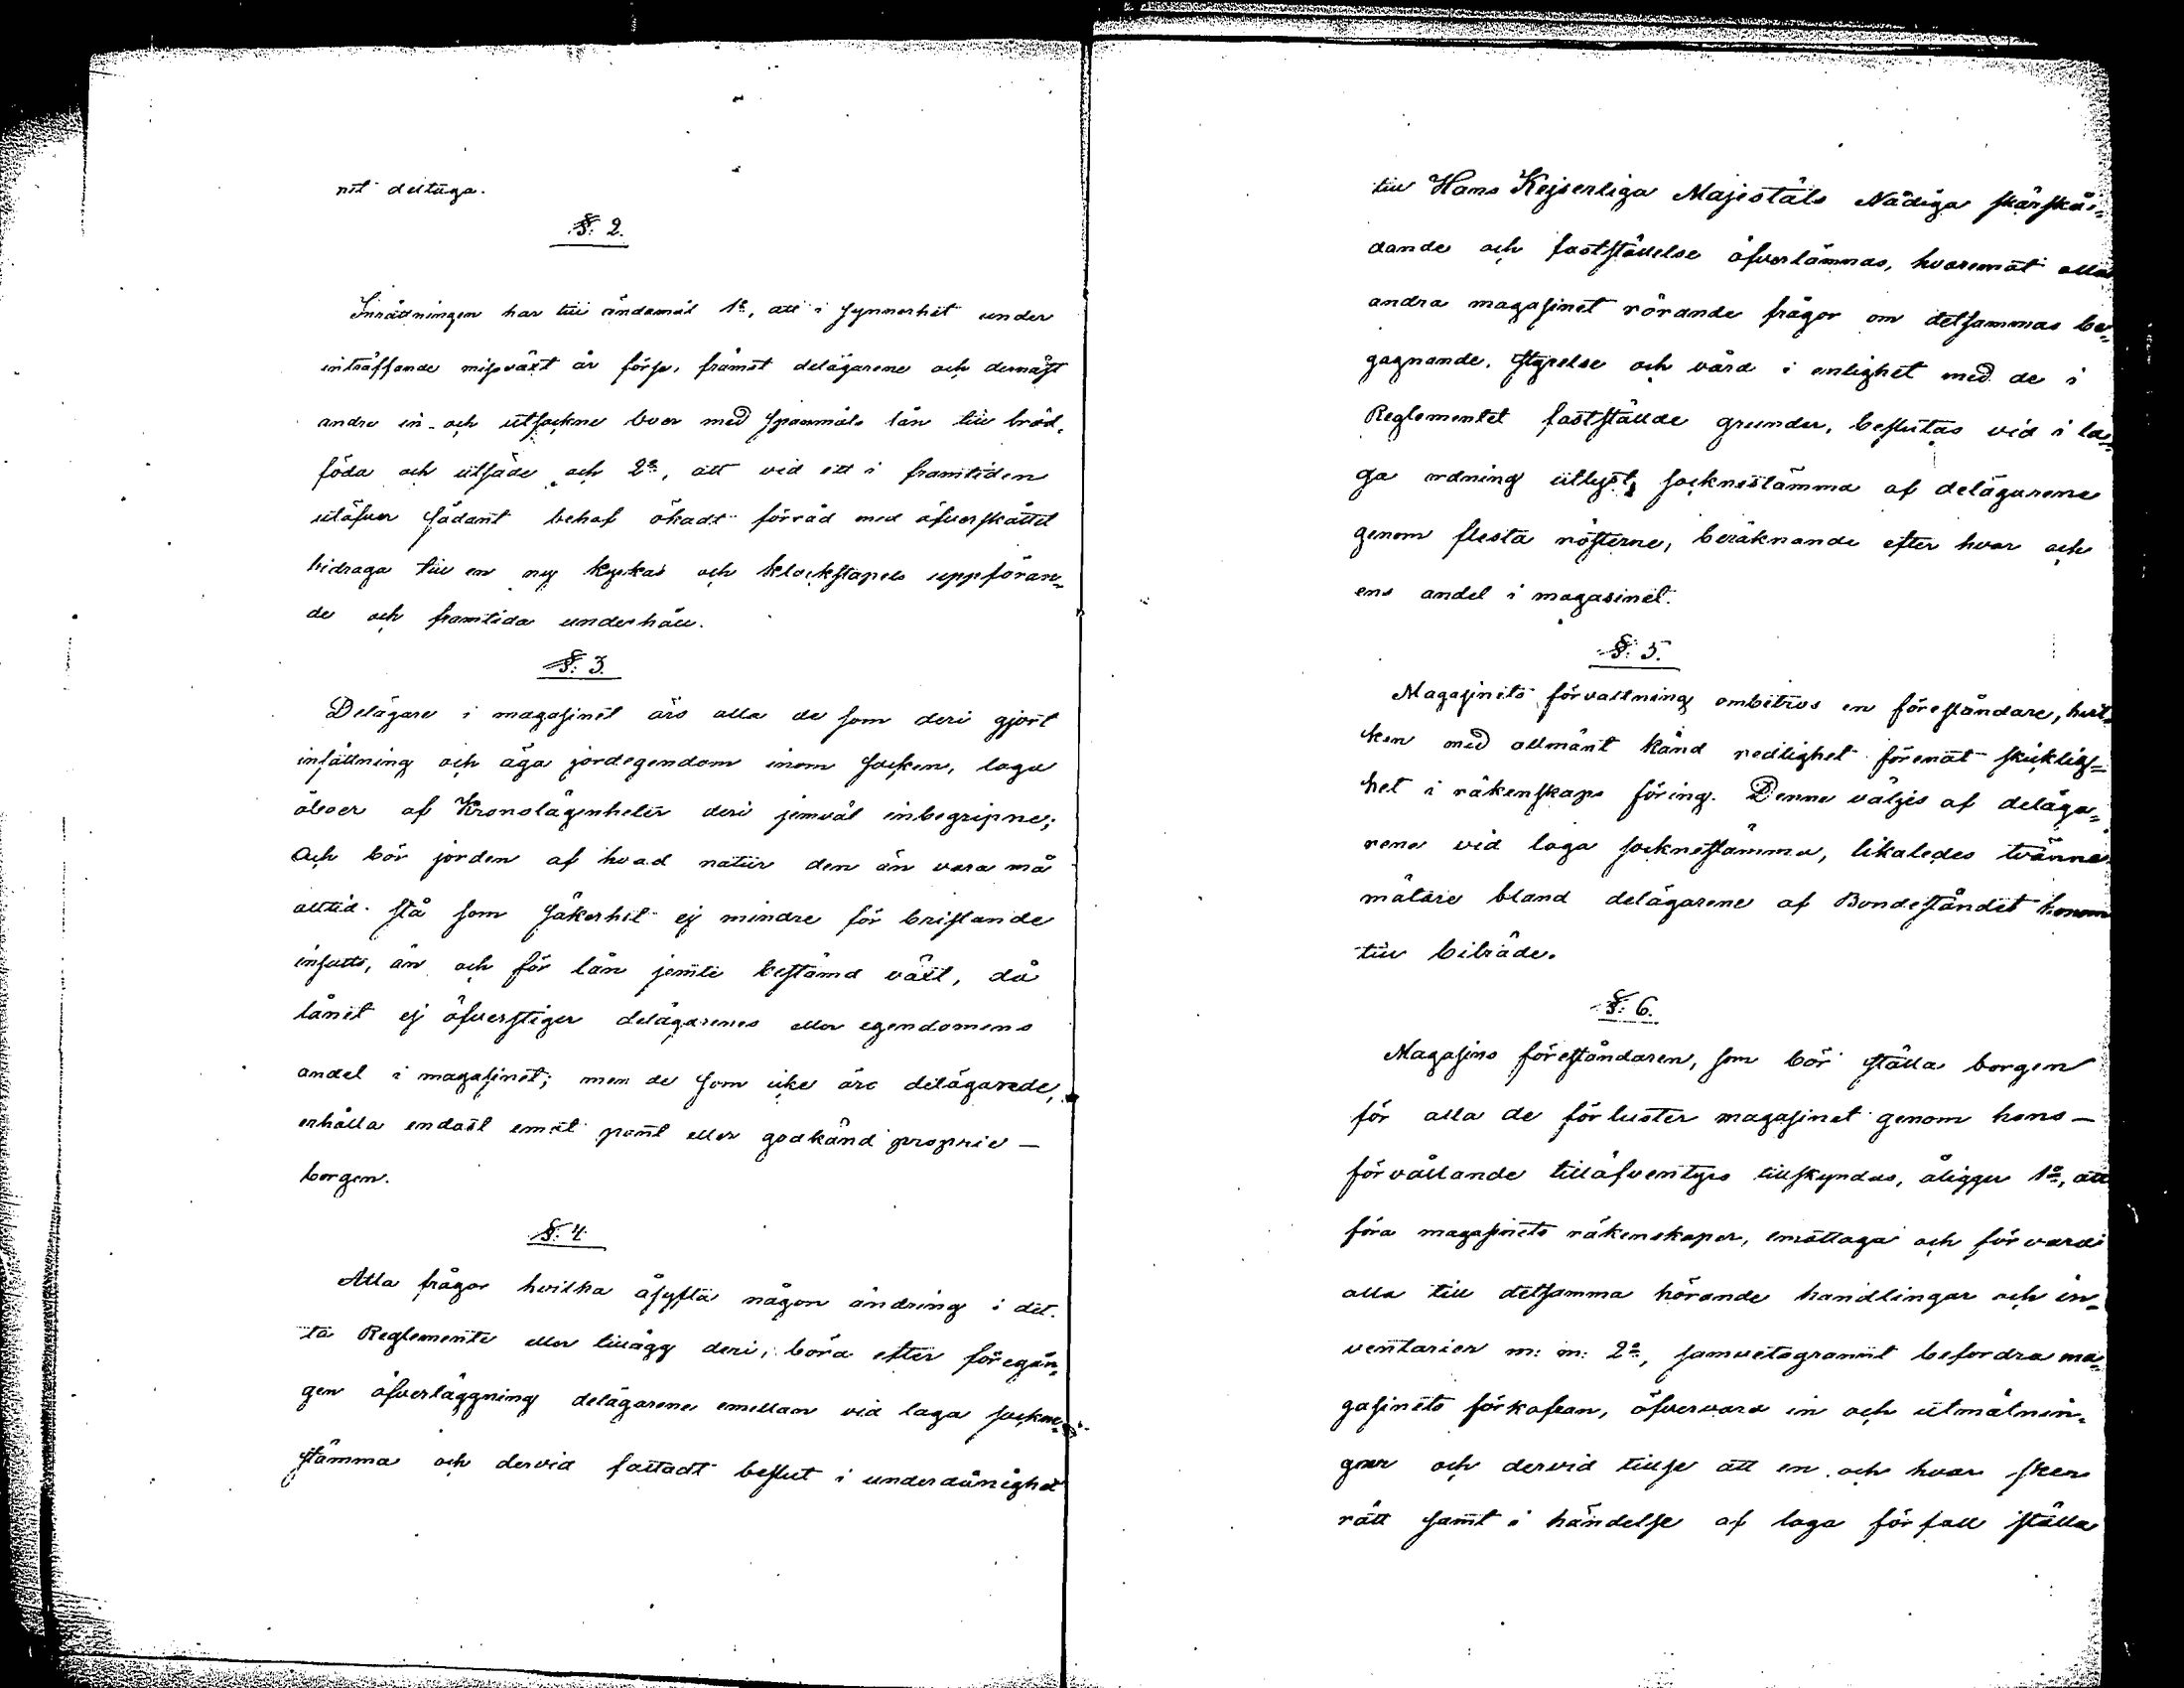 net deltaga.
§. 2.
Inrättningen har till ändamål 1o, att i synnerhet under
inträffande missväxt år förse, främst delägarene och dernäst
andre in- och utsockne boer med spannmåls lån till bröd,
föda och utsäde och 2o, att vid ett i framtiden
utöfver sådant behof ökadt förråd med öfverskottet
bidraga till en ny kyrkas och klockstapels uppföran-
de och framtida underhåll.
§. 3.
Delägare i magasinet äro alla de som deri gjort
insättning och äga jordegendom inom socken, laga
åboer af Kronolägenheter deri jemväl inbegripne;
och bör jorden af hvad natur den än vara må
alltid stå som säkerhet ej mindre för bristande
insatts, än och för lån jemte bestämd växt, då
lånet ej öfverstiger delägarenes eller egendomens
andel i magasinet; men de som icke äro delägarede,
erhålla endast emot pant eller godkänd proprie-
borgen.
§. 4.
Alla frågor hvilka åsyfta någon ändring i det-
ta Reglemente eller tillägg deri, böra efter föregån-
gen öfverläggning delägarene emellan vid laga sockne-
stämma och dervid fattadt beslut i underdånighet
till Hans Kejserliga Majestäts Nådiga skärskå-
dande och fastställelse öfverlämnas, hvaremot alla
andra magasinet rörande frågor om detsammas be-
gagnande, styrelse och vård i enlighet med de i
Reglementet fastställde grunder, beslutas vid i la-
ga ordning utlyst sockenestämma af delägarene
genom flesta rösterne, beräknande efter hvar och
ens andel i magasinet.
§. 5.
Magasinets förvaltning ombetros en föreståndare, hvil-
ken med allmänt känd redlighet förenat skicklig-
het i räkenskaps föring. Denne väljes af deläga-
rene vid laga socknestämma, likaledes tvänne
mätare bland delägarene af Bondeståndet honom
till biträde.
§. 6.
Magasins föreståndaren, som bör ställa borgen
för alla de förluster magasinet genom hans-
förvållande tilläfventyrs tillskyndas, åligger 1o, att
föra magasinets räkenskaper, emottaga och förvara
alla till detsamma hörande handlingar och in-
ventarier m: m: 2o, samvetsgrannt befordra ma-
gasinets förkofran, öfvervara in och utmätnin-
gar och dervid tillse att en och hvar sker
rätt samt i händelse af laga förfall ställa